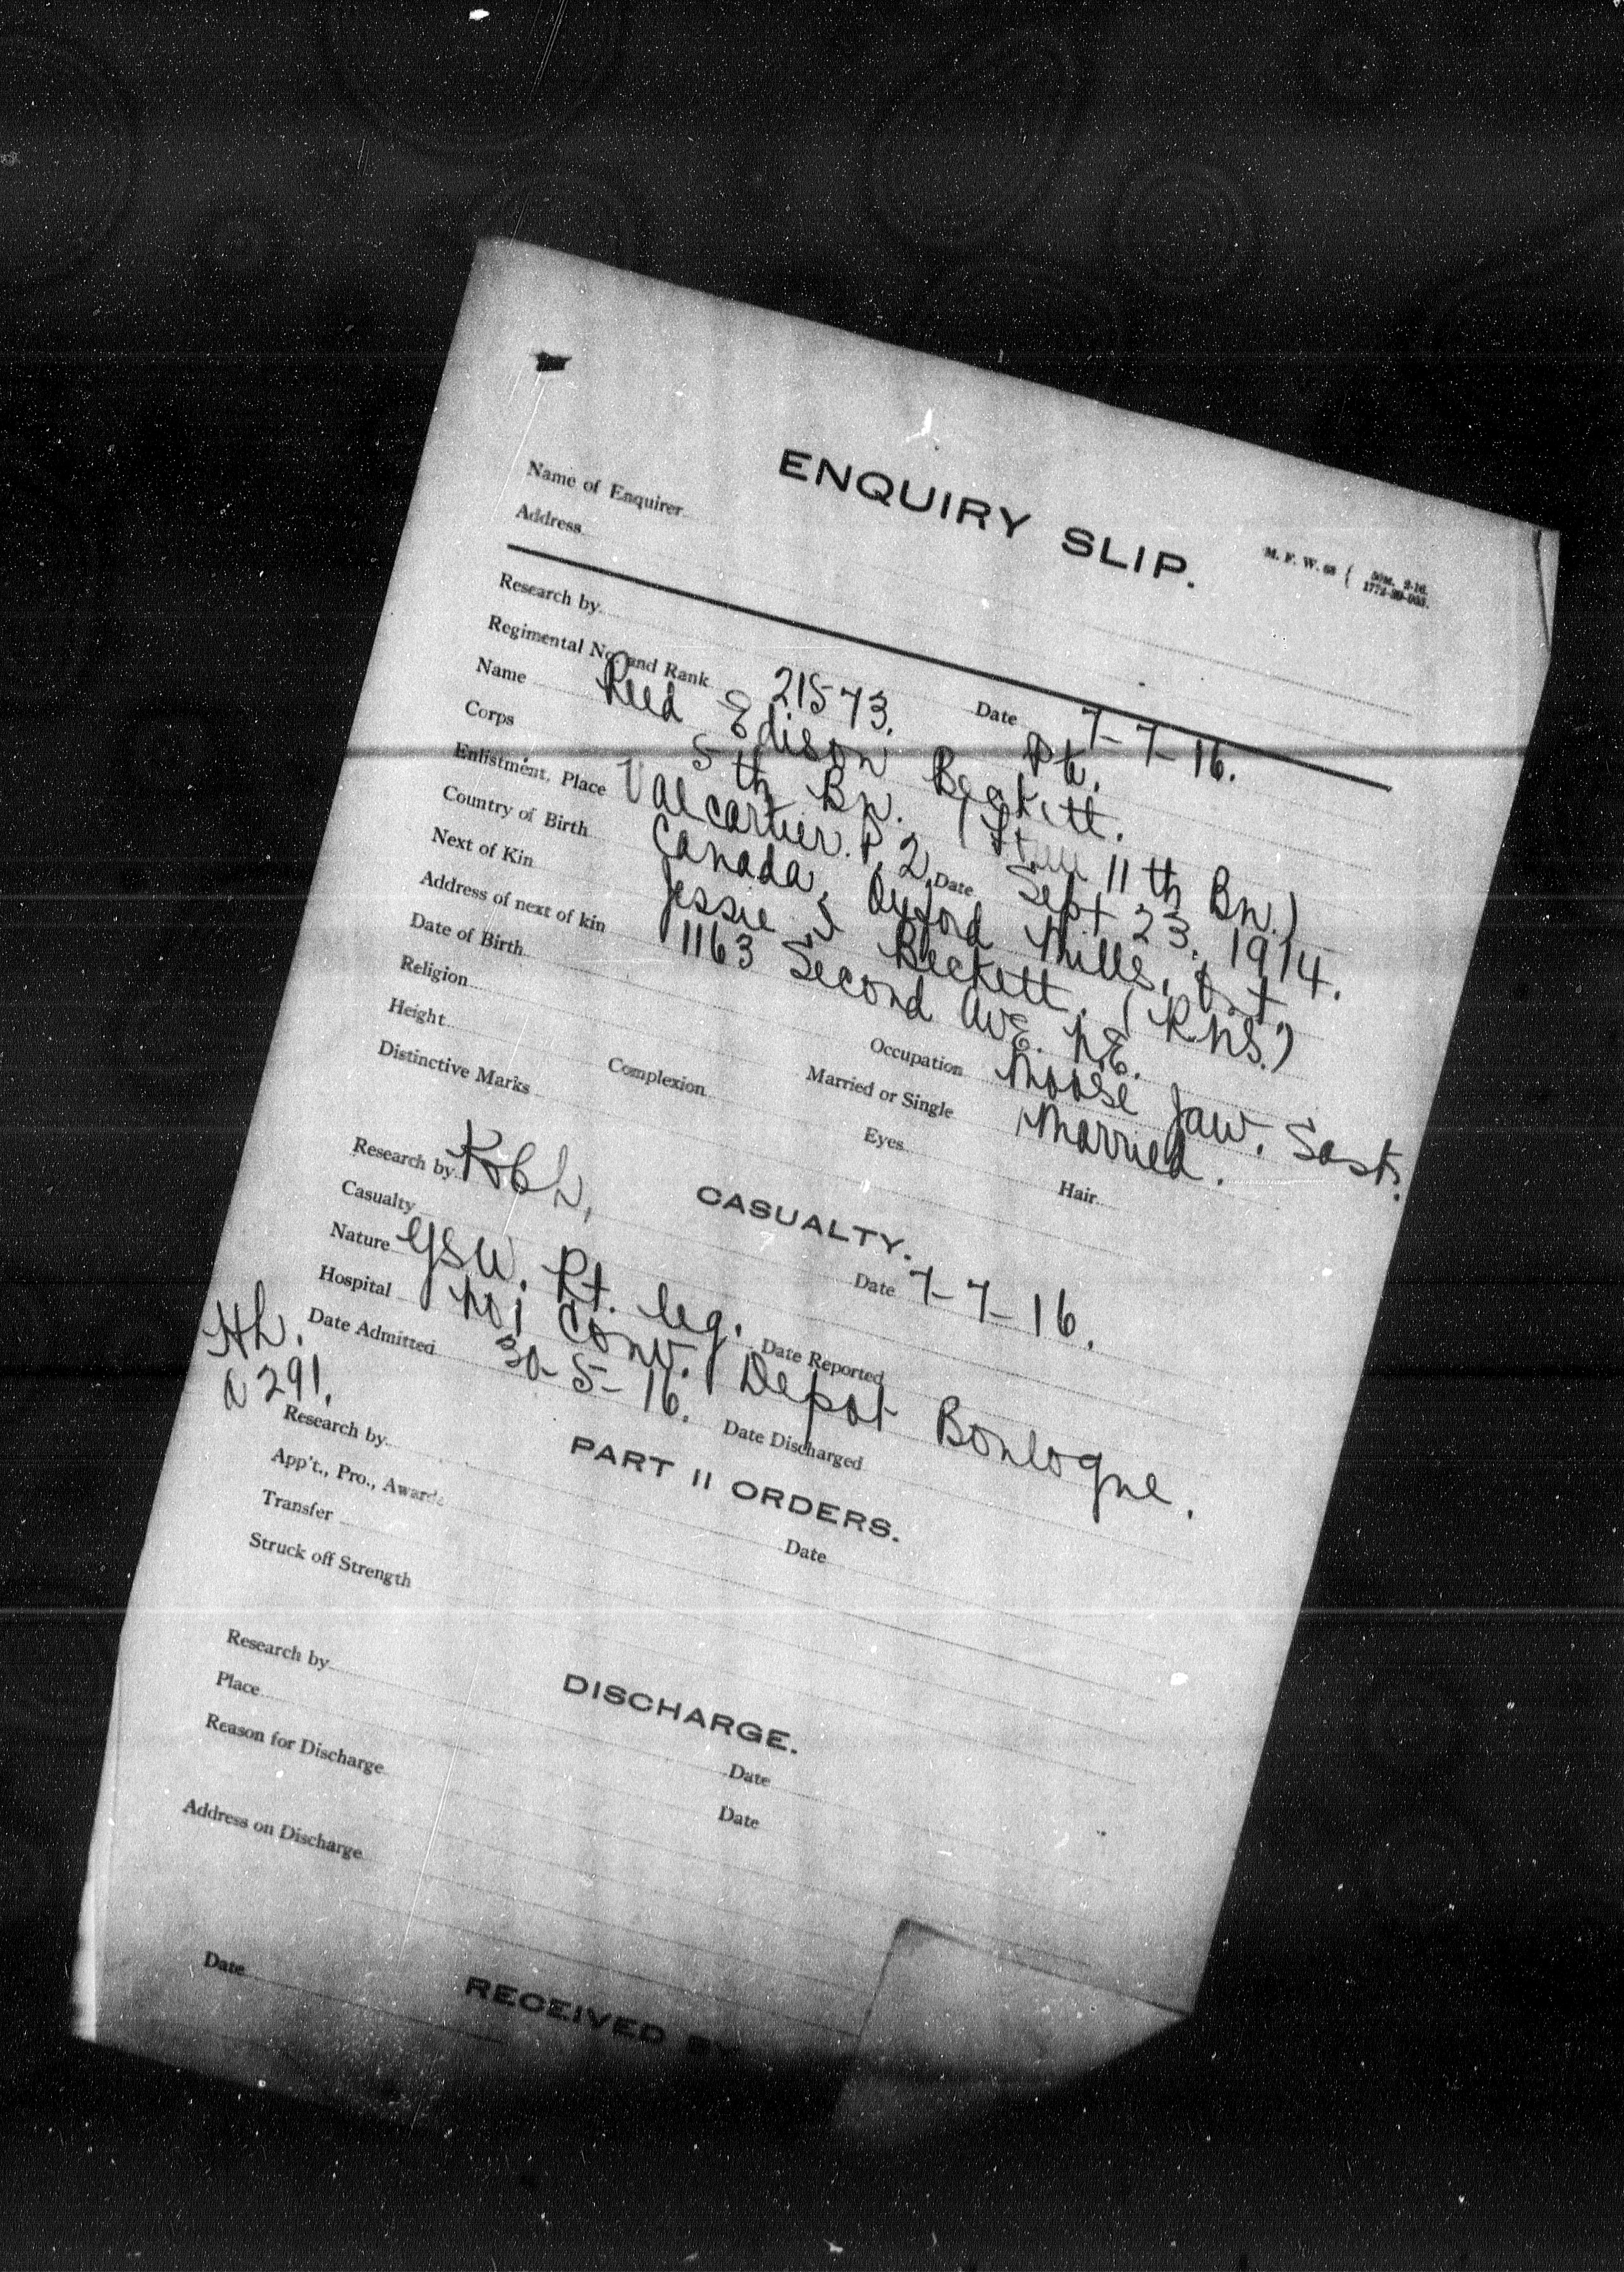 ENQUIRY SLIP.
M. F. W. 68 { 50M. 2-16.
1772-39-935.
Name of Enquirer
Address
Research by Date 7-7-16.
Regimental No. and Rank 21573. Pte.
Name Reed Edison Beckett.
Corps 5th Bn. ( 11th Bn.)
Enlistment, Place Valcartier. P. 2. Date Sept 23, 1914.
Country of Birth Canada, Oxford Mills, Ont.
Next of Kin Jessie Beckett.
Address of next of kin 1163 Second AvE. N.E.
Moose Jaw. Sask.
Date of Birth Occupation
Religion Married or Single Married.
Height Complexion Eyes Hair
Distinctive Marks
CASUALTY.
Research by Date 7-7-16.
Casualty
Nature GSW. Rt. leg. Date Reported
Hospital No 1 Conv. Depot Bonlogne.
Date Admitted 30-5-16. Date Discharged
Hh.
A 291.
PART II ORDERS.
Research by Date
App't., Pro., Awards
Transfer
Struck off Strength
DISCHARGE.
Research by Date
Place Date
Reason for Discharge
Address on Discharge
RECEIVED BY
Date